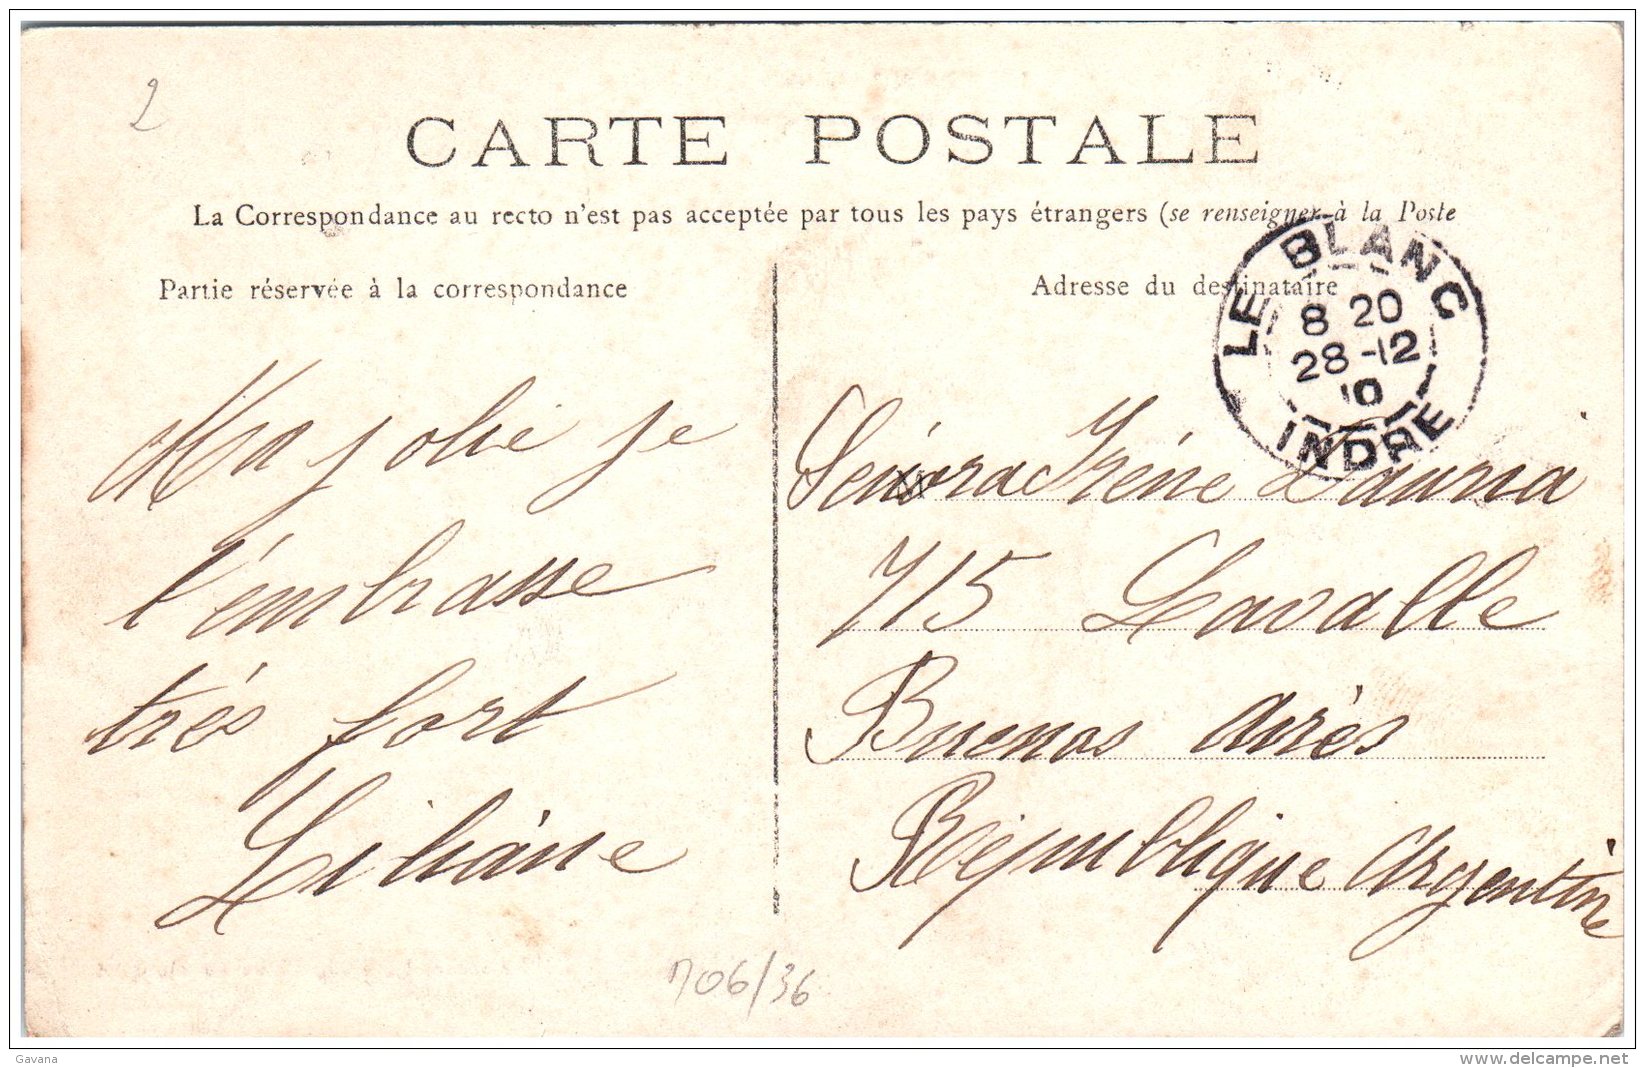 2
CARTE POSTALE
La Correspondance au recto n'est pas acceptée par tous les pays étrangers (se renseigner à la Poste
Partie réservée à la correspondance
Ma jolie je
t'émbrasse
très fort
Liliane
Adresse du destinataire
LE BLANC
8 20
28-12
10
INDRE
Señora Irène Dauria
715 Lavalle
Buenos Airès
République Argentine
706/36
Gavana
delcampe.net